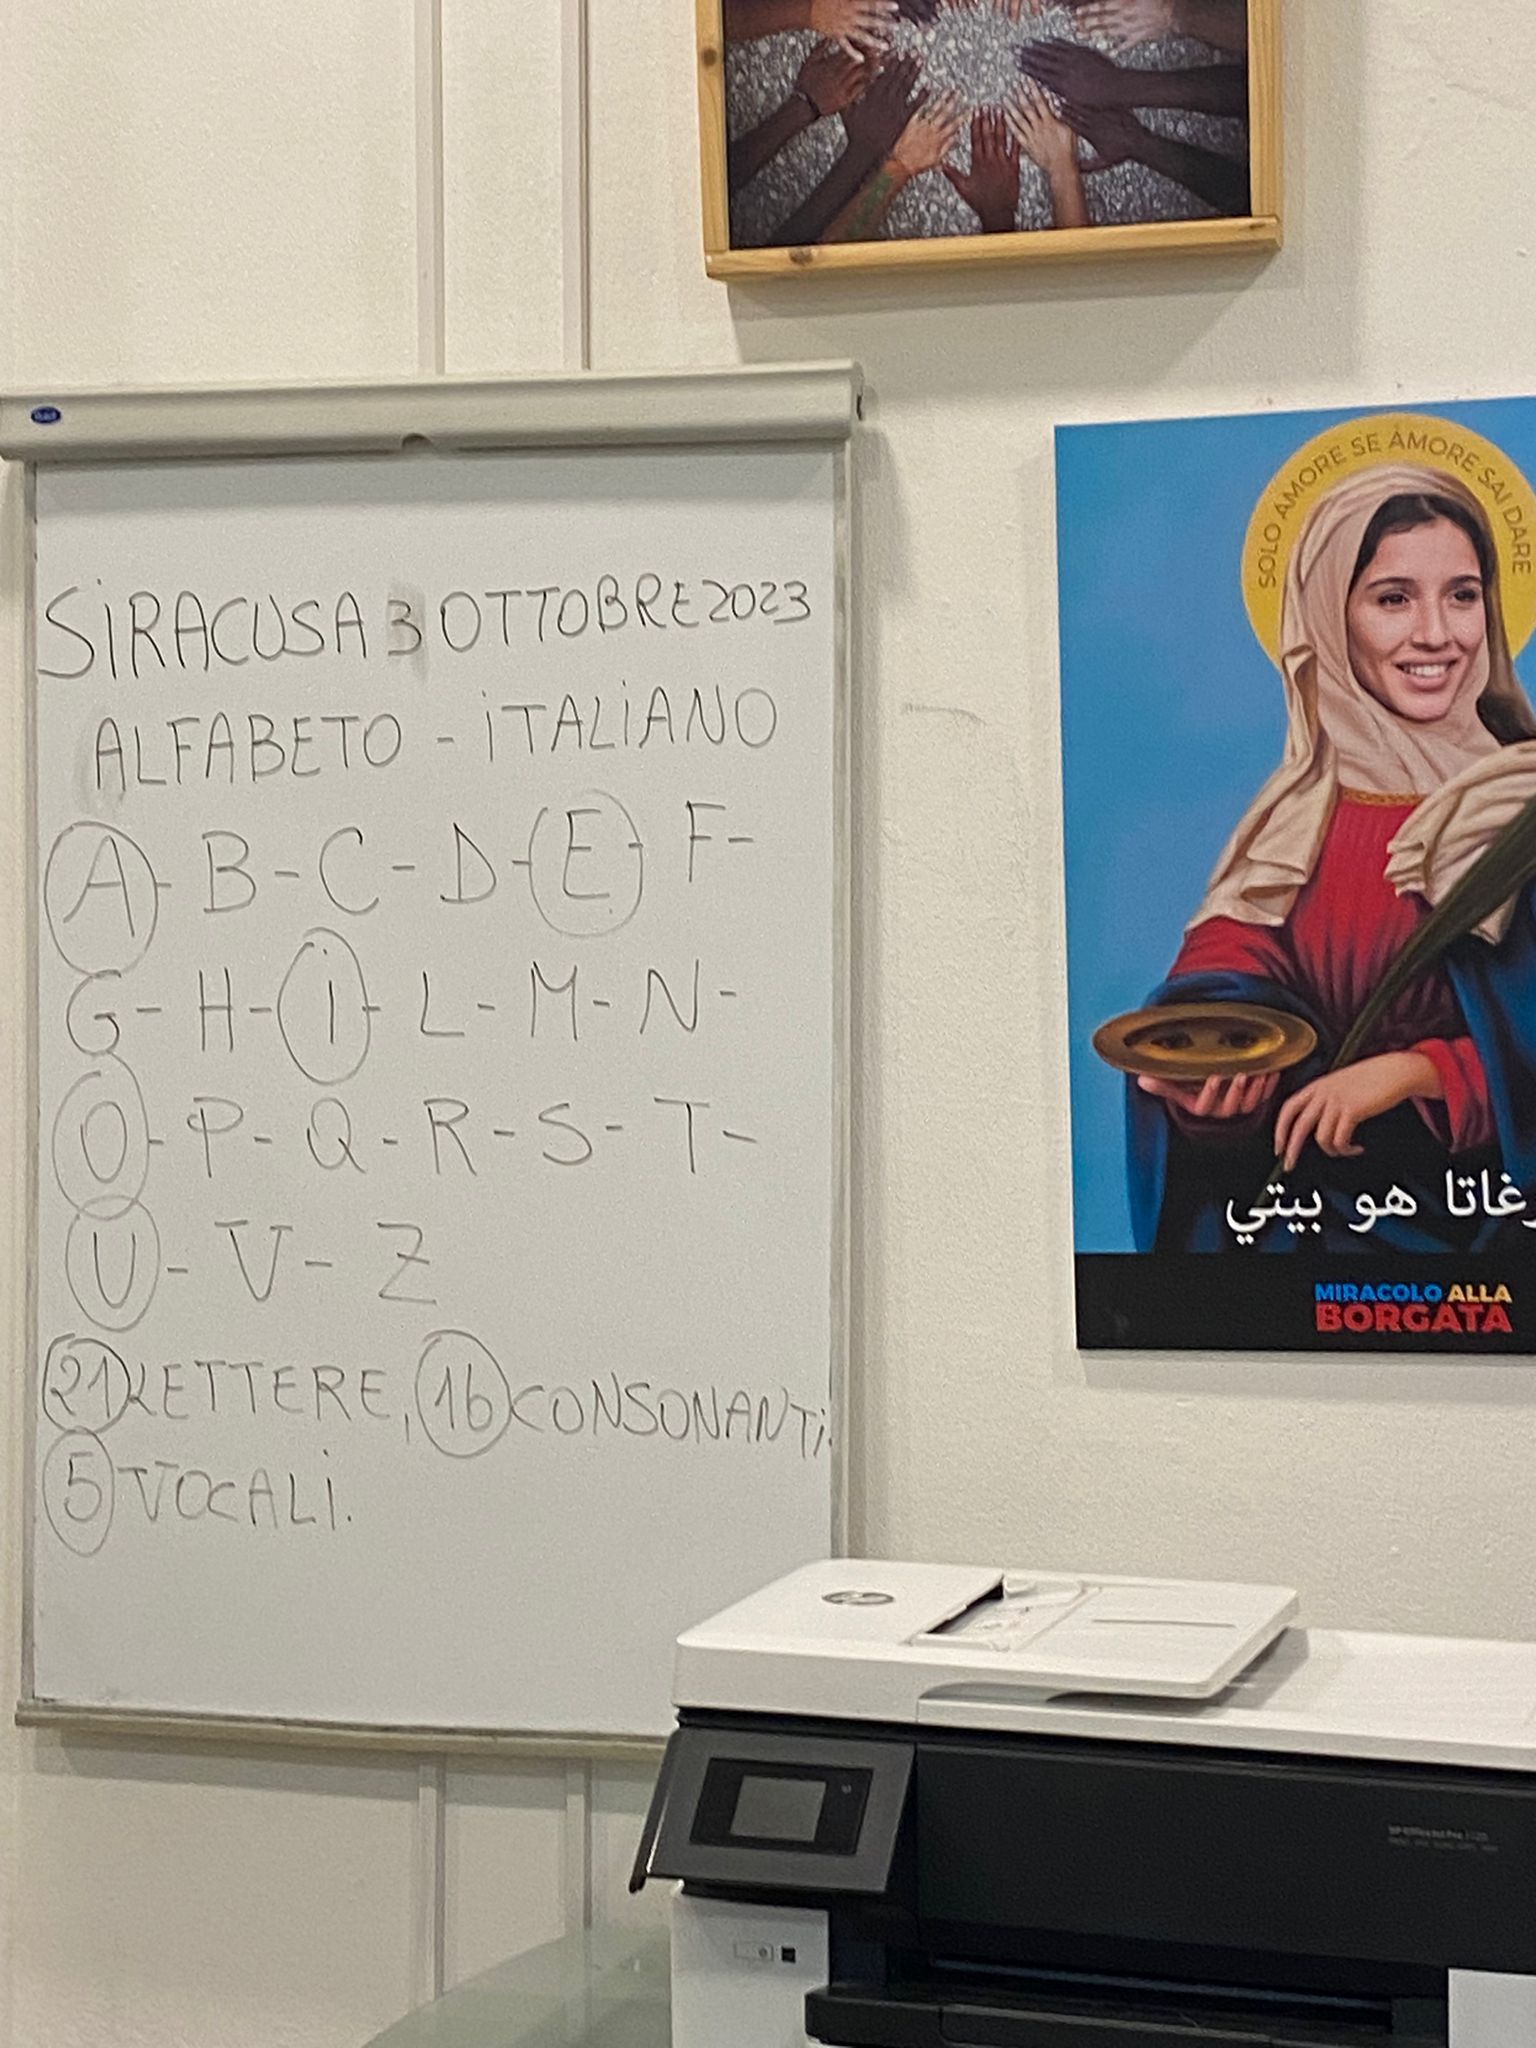 SIRACUSA 3 OTTOBRE 2023
ALFABETO - ITALIANO
A - B - C - D - E - F -
G - H - I - L - M - N -
O - P - Q - R - S - T -
U - V - Z
21 LETTERE, 16 CONSONANTI.
5 VOCALI.
SOLO AMORE SE AMORE SAI DARE
هو بيتي
MIRACOLO ALLA
BORGATA
hp